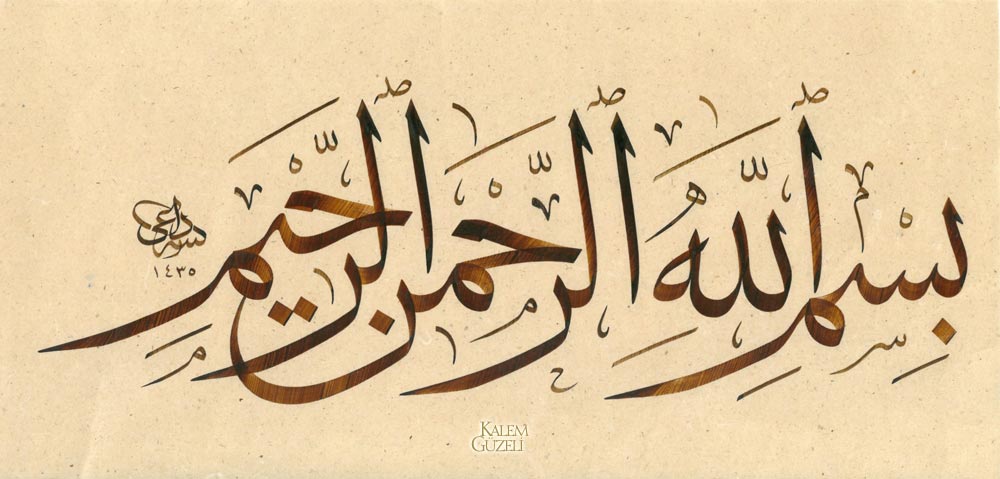 بِسْمِ ٱللَّهِ ٱلرَّحْمَٰنِ ٱلرَّحِيمِ
١٤٣٥
KALEM
GÜZELİ